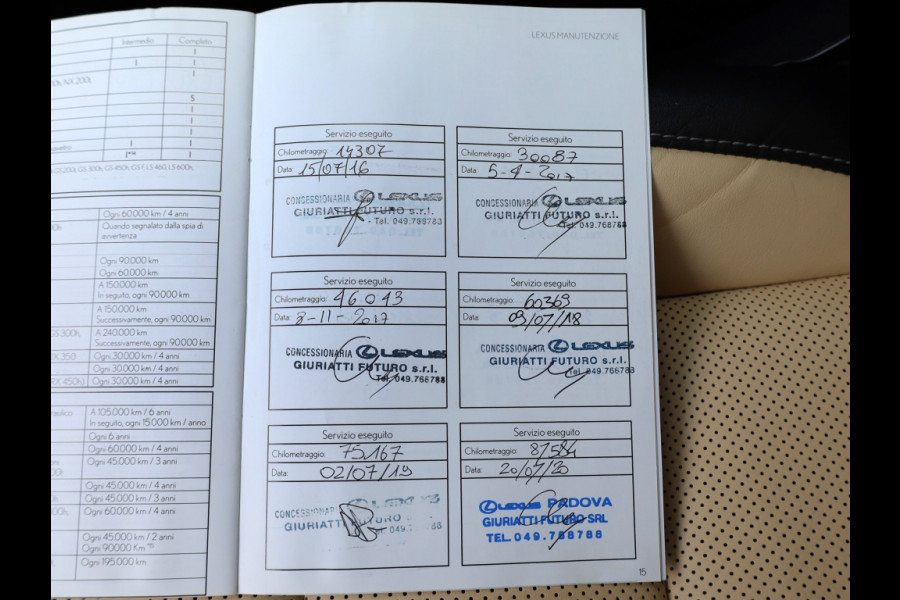 Intermedio Completo
I
I I
I
S
I
I
I
I I
I** I
Ogni 60.000 km / 4 anni
Quando segnalato dalla spia di
avvertenza
Ogni 90.000 km
Ogni 60.000 km
A 150.000 km
In seguito, ogni 90.000 km
A 150.000 km
Successivamente, ogni 90.000 km
A 240.000 km
Successivamente, ogni 90.000 km
Ogni 30.000 km / 4 anni
Ogni 30.000 km / 4 anni
Ogni 30.000 km / 4 anni
A 105.000 km / 6 anni
In seguito, ogni 15.000 km / anno
Ogni 6 anni
Ogni 60.000 km / 4 anni
Ogni 45.000 km / 3 anni
Ogni 45.000 km / 4 anni
Ogni 45.000 km / 3 anni
Ogni 60.000 km / 4 anni
Ogni 45.000 km / 2 anni
Ogni 90.000 Km
Ogni 195.000 km
LEXUS MANUTENZIONE
Servizio eseguito
Chilometraggio: 14307
Data: 15/07/16
CONCESSIONARIA LEXUS
GIURIATTI FUTURO s.r.l.
- Tel. 049.768788
Servizio eseguito
Chilometraggio: 30087
Data: 5-4-2017
CONCESSIONARIA LEXUS
GIURIATTI FUTURO s.r.l.
Tel. 049.768788
Servizio eseguito
Chilometraggio: 46043
Data: 8-11-2017
CONCESSIONARIA LEXUS
GIURIATTI FUTURO s.r.l.
Tel. 049.768788
Servizio eseguito
Chilometraggio: 60369
Data: 09/07/18
CONCESSIONARIA LEXUS
GIURIATTI FUTURO s.r.l.
Tel. 049.768788
Servizio eseguito
Chilometraggio: 75167
Data: 02/07/19
CONCESSIONARIA LEXUS
GIURIATTI FUTURO
Servizio eseguito
Chilometraggio: 87584
Data: 20/07/20
LEXUS PADOVA
GIURIATTI FUTURO SRL
TEL. 049.768788
15